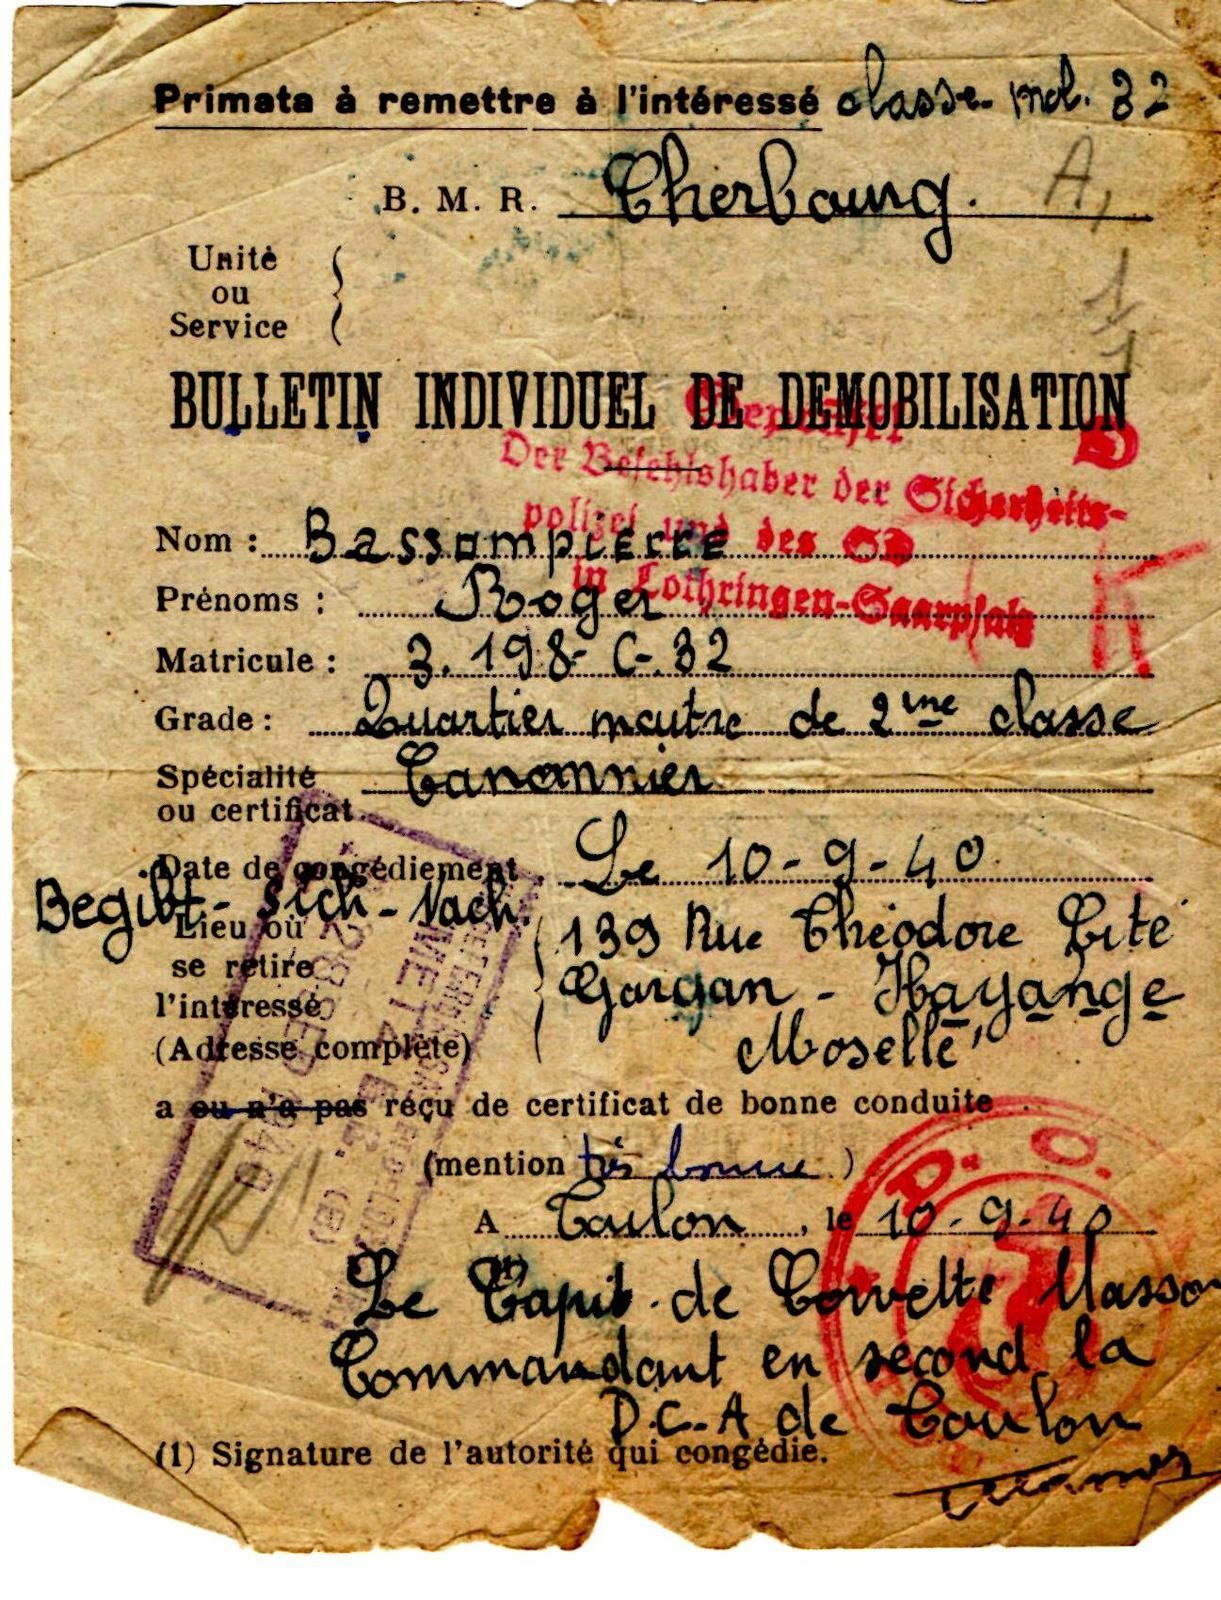 Primata à remettre à l'intéressé classe mob. 32
B. M. R. Cherbourg.
A,
Unité
ou
Service
1
1
BULLETIN INDIVIDUEL DE DEMOBILISATION
D
Der Befehlshaber der Sicherheits-
polizei und des SD
in Lothringen-Saarpfalz
Nom : Bassompierre
Prénoms : Roger
K
Matricule : 3.198-C-32
Grade : Quartier maitre de 2me classe
Spécialité
ou certificat Canonnier
Date de congédiement Le 10-9-40
Begibt - Sich - Nach.
Lieu où
se retire
l'intéressé
(Adresse complète)
139 Rue Théodore Cité
Gargan - Hayange
Moselle
METZ
28 SEP 1940
a ou n'a pas reçu de certificat de bonne conduite
(mention très bonne)
D. C.
A Toulon, le 10-9-40
Le Capit de Corvette Masson
Commandant en second la
D.C.A de Toulon
(1) Signature de l'autorité qui congédie.